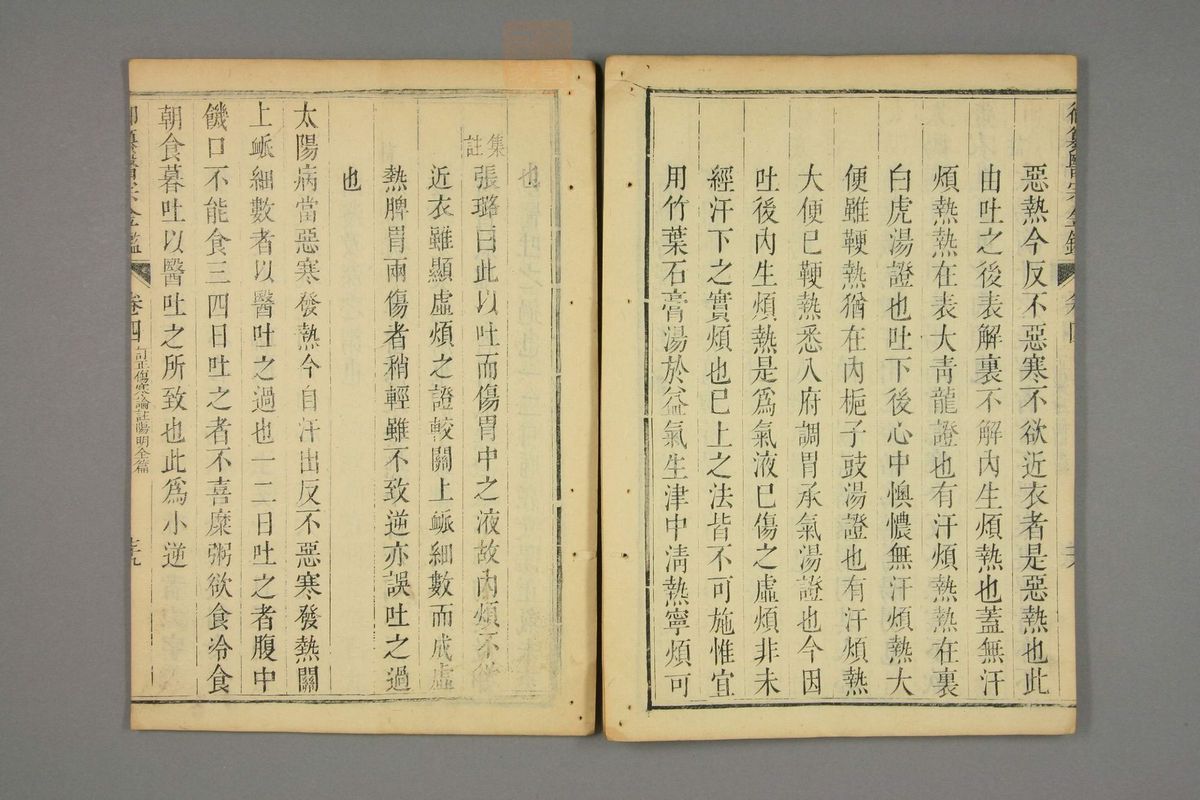 惡熱今反不惡寒不欲近衣者是惡熱也此
由吐之後表解裏不解內生煩熱也蓋無汗
煩熱熱在表大青龍證也有汗煩熱熱在裏
白虎湯證也吐下後心中懊憹無汗煩熱大
便雖鞕熱猶在內梔子豉湯證也有汗煩熱
大便已鞕熱悉入府調胃承氣湯證也今因
吐後內生煩熱是爲氣液已傷之虛煩非未
經汗下之實煩也已上之法皆不可施惟宜
用竹葉石膏湯於益氣生津中清熱寧煩可
也
集註張璐曰此以吐而傷胃中之液故內煩不欲
近衣雖顯虛煩之證較關上脈細數而成虛
熱脾胃兩傷者稍輕雖不致逆亦誤吐之過
也
太陽病當惡寒發熱今自汗出反不惡寒發熱關
上脈細數者以醫吐之過也一二日吐之者腹中
饑口不能食三四日吐之者不喜糜粥欲食冷食
朝食暮吐以醫吐之所致也此爲小逆
御纂醫宗金鑑 卷四 訂正傷寒論註陽明全篇